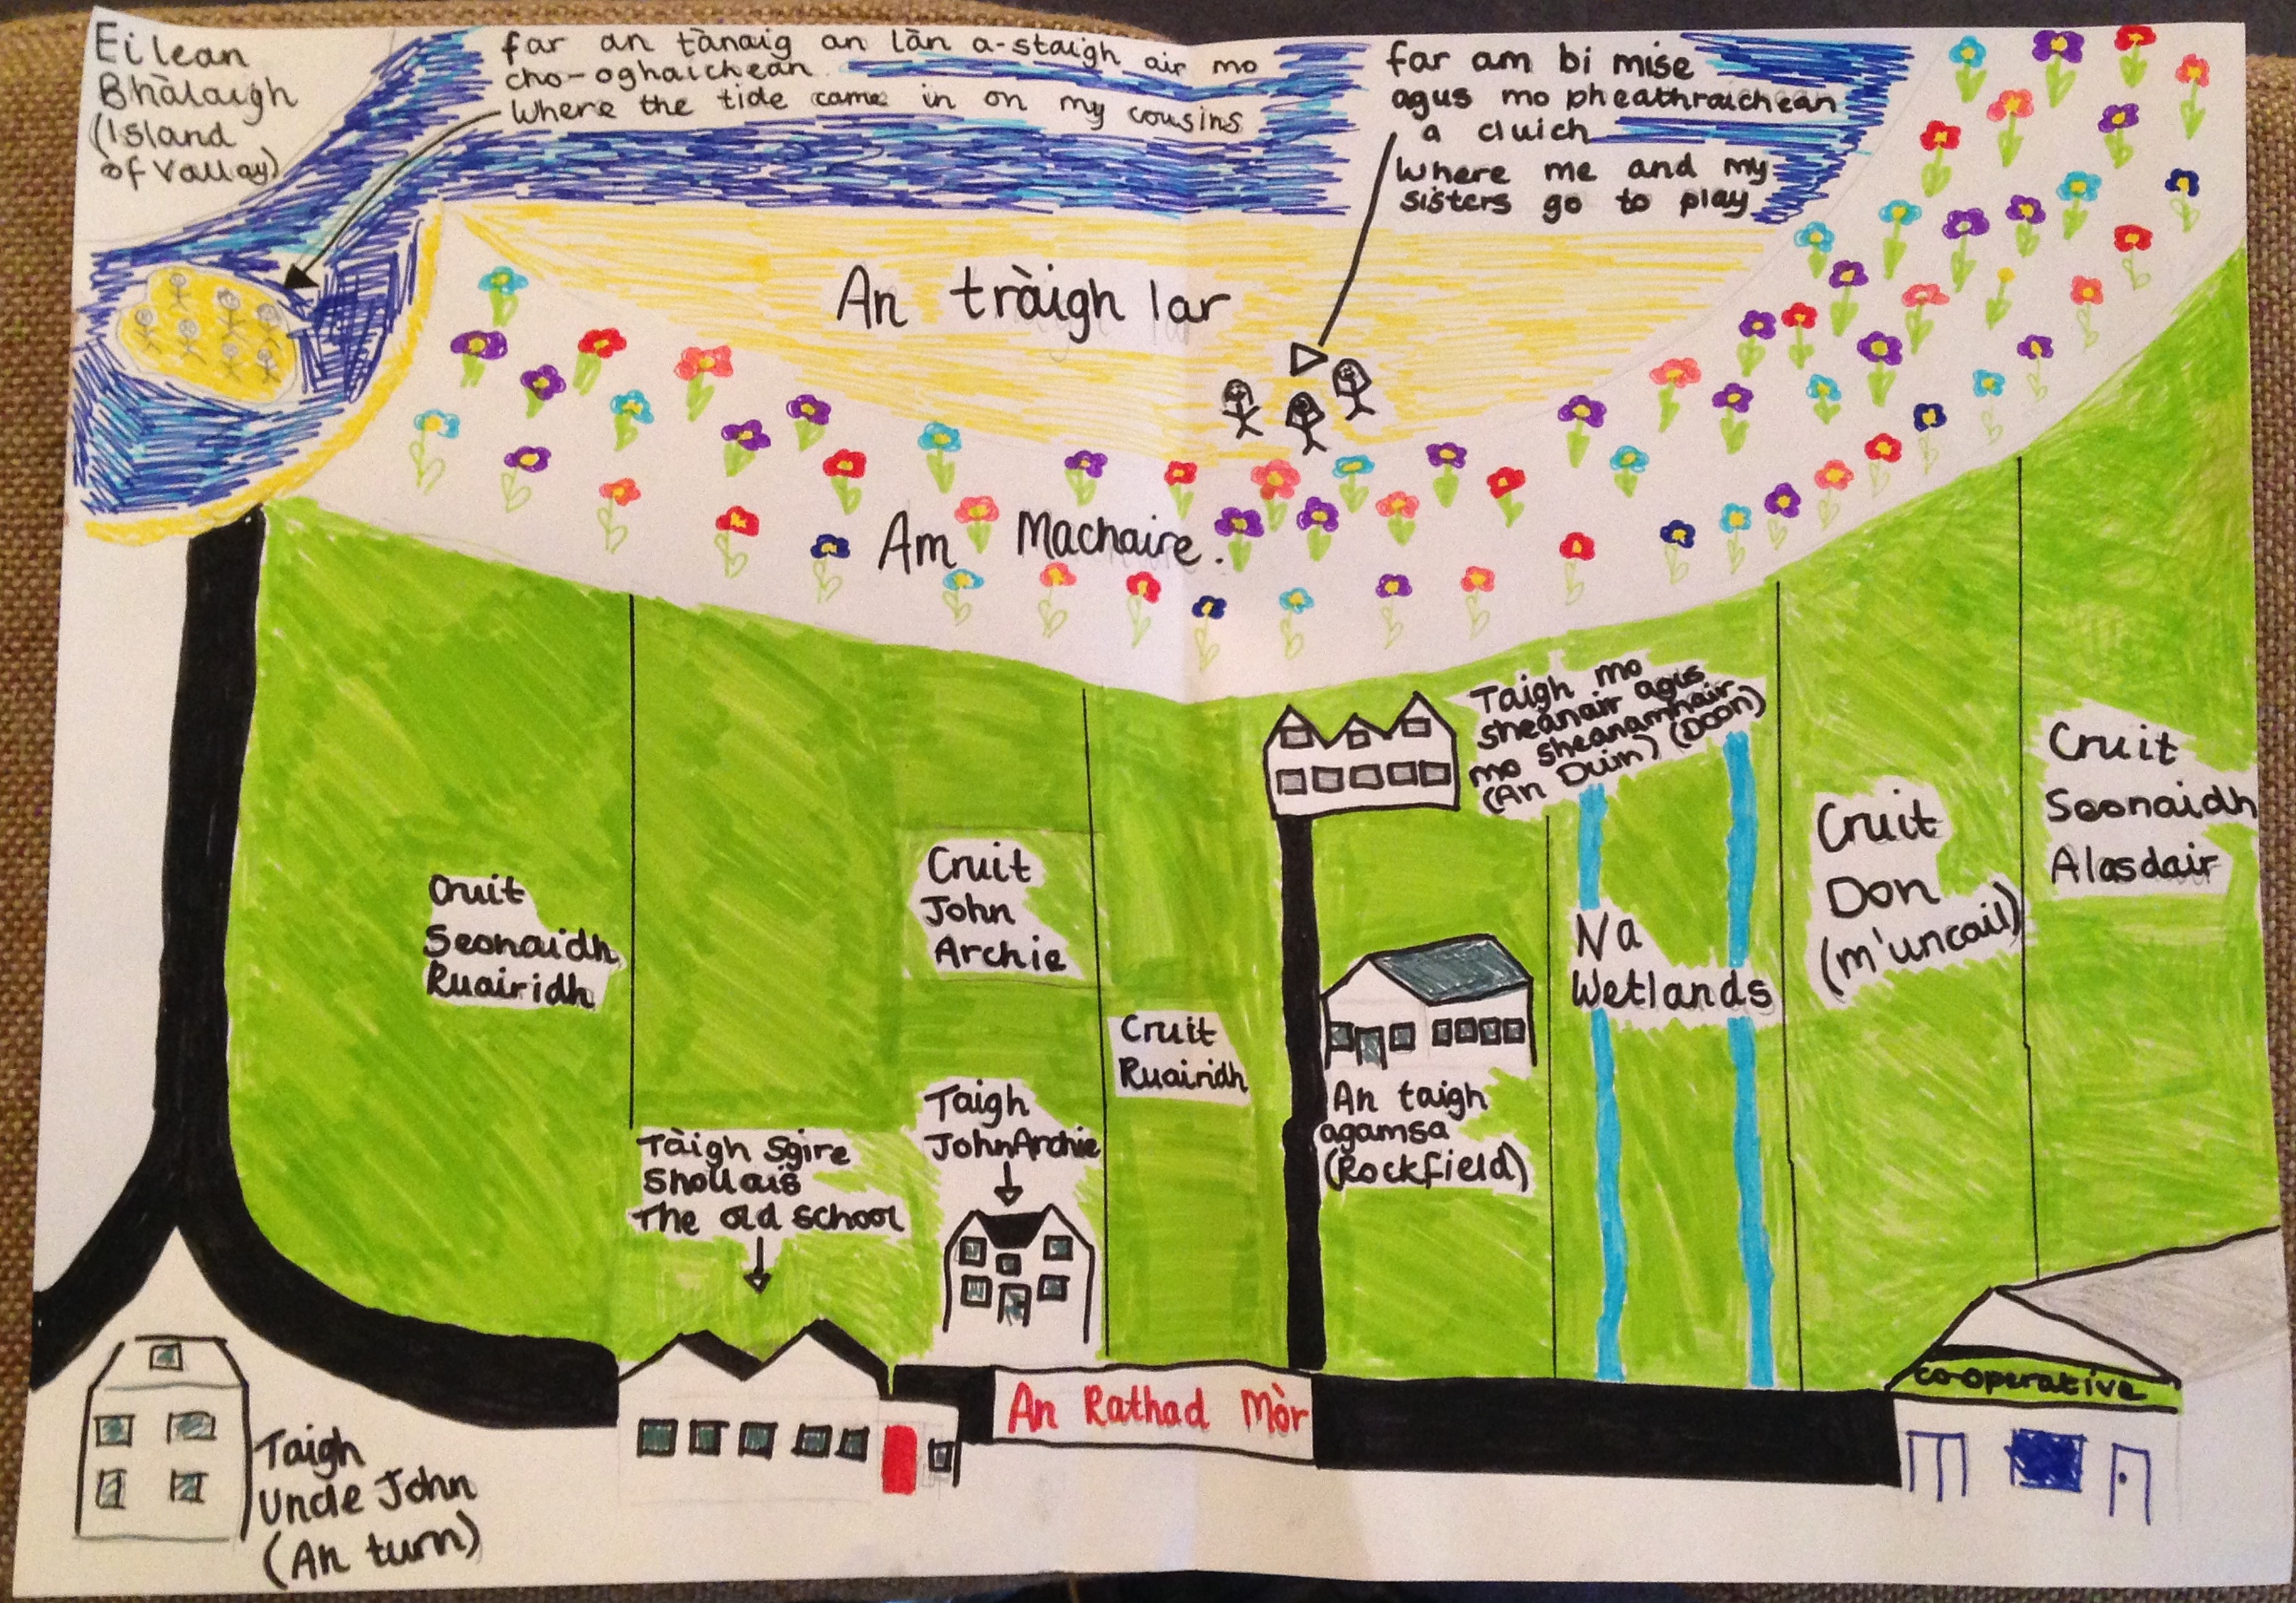 Eilean
Bhàlaigh
(Island
of Vallay)
far an tànaig an làn a-staigh air mo
cho-oghaichean
Where the tide came in on my cousins
far am bi mise
agus mo pheathraichean
a cluich
Where me and my
sisters go to play
An tràigh Iar
Am Machaire.
Taigh mo
sheanair agus
mo sheanamhair
(An Duin) (Doon)
Cruit
Seonaidh
Ruairidh
Cruit
John
Archie
Cruit
Ruairidh
Na
Wetlands
Cruit
Don
(m'uncail)
Cruit
Seonaidh
Alasdair
An taigh
agamsa
(Rockfield)
Taigh
John Archie
Tàigh Sgire
Shollais
The old school
An Rathad Mòr
co-operative
Taigh
Uncle John
(An turn)